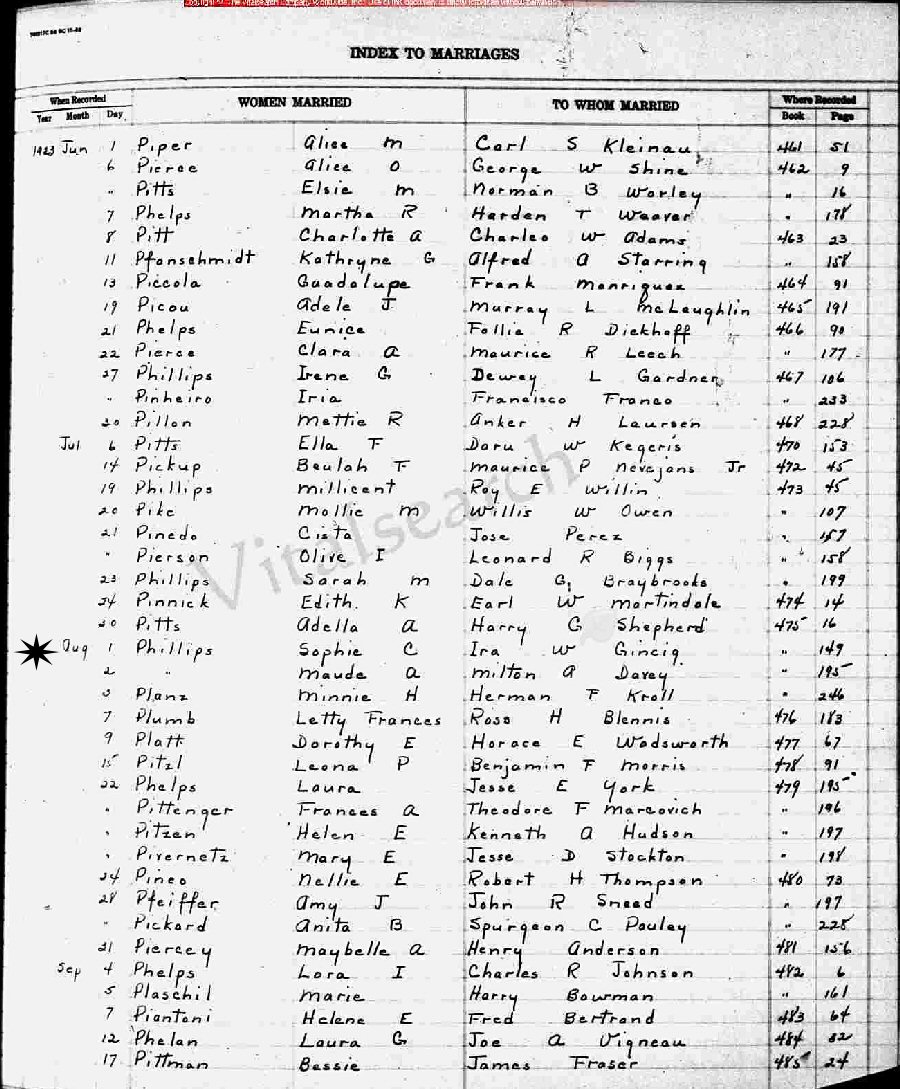 INDEX TO MARRIAGES
When Recorded WOMEN MARRIED TO WHOM MARRIED Where Recorded
Year Month Day Book Page
1923 Jun 1 Piper Alice M Carl S Kleinau 461 51
6 Pierce Alice O George W Shine 462 9
" Pitts Elsie M Norman B Worley " 16
7 Phelps Martha R Harden T Weaver " 178
8 Pitt Charlotte A Charles W Adams 463 23
11 Pfanschmidt Kathryne G Alfred A Starring " 158
13 Piccola Guadalupe Frank Manriquez 464 91
19 Picou Adele J Murray L McLaughlin 465 191
21 Phelps Eunice Follie R Dickhoff 466 90
22 Pierce Clara A Maurice R Leech " 177
27 Phillips Irene G Dewey L Gardner 467 106
" Pinheiro Iria Francisco Franco " 233
30 Pillon Mettie R Anker H Laursen 468 228
Jul 6 Pitts Ella F Daru W Kegeris 470 153
14 Pickup Beulah F Maurice P Nevejans Jr 472 45
19 Phillips Millicent Roy E Willin 473 45
20 Pike Mollie M Willis W Owen " 107
21 Pinedo Cista Jose Perez " 157
" Pierson Olive I Leonard R Biggs " 158
23 Phillips Sarah M Dale G Braybrooks " 199
24 Pinnick Edith K Earl W Martindale 474 14
30 Pitts Adella A Harry G Shepherd 475 16
Aug 1 Phillips Sophie C Ira W Gincig " 149
2 " Maude A Milton A Davey " 195
3 Planz Minnie H Herman F Kroll " 246
7 Plumb Letty Frances Ross H Blennis 476 183
9 Platt Dorothy E Horace E Wadsworth 477 67
15 Pitzl Leona P Benjamin F Morris 478 91
22 Phelps Laura Jesse E York 479 195
" Pittenger Frances A Theodore F Marcovich " 196
" Pitzen Helen E Kenneth A Hudson " 197
" Pivernetz Mary E Jesse D Stockton " 198
24 Pineo Nellie E Robert H Thompson 480 73
28 Pfeiffer Amy J John R Sneed " 197
" Pickard Anita B Spurgeon C Pauley " 225
31 Piercey Maybelle A Henry Anderson 481 156
Sep 4 Phelps Lora I Charles R Johnson 482 6
5 Plaschil Marie Harry Bowman " 161
7 Piantoni Helene E Fred Bertrand 483 64
12 Phelan Laura G Joe A Vigneau 484 32
17 Pittman Bessie James Fraser 485 24
Vitalsearch